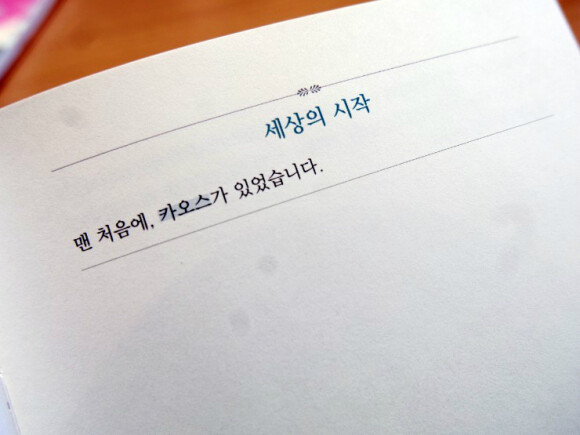 세상의 시작
맨 처음에, 카오스가 있었습니다.